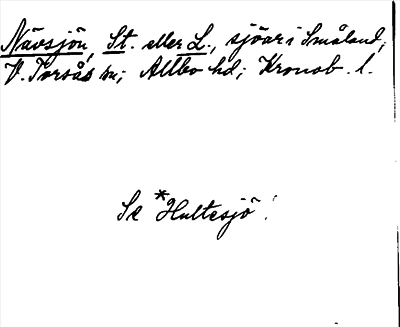 Nävsjön, St. eller L., sjöar i Småland,
V. Torsås sn; Allbo hd; Kronob. l.
Se *Hultesjö!